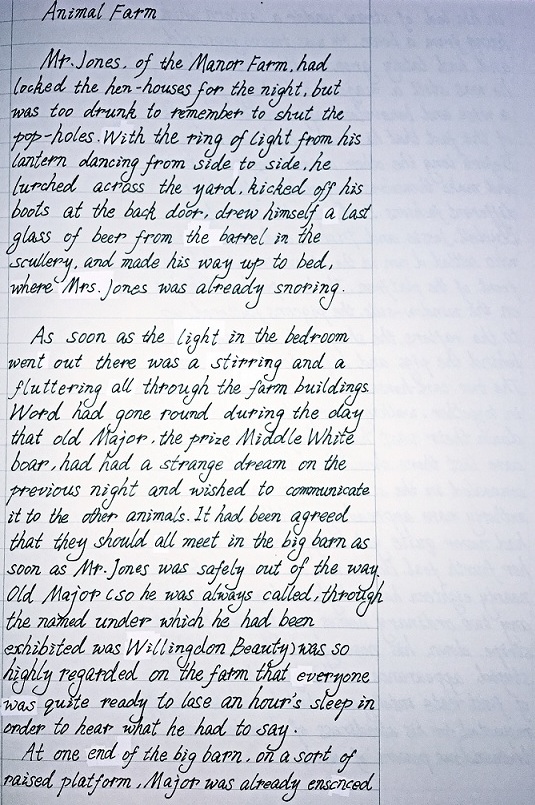 Animal Farm
Mr. Jones, of the Manor Farm, had
locked the hen-houses for the night, but
was too drunk to remember to shut the
pop-holes. With the ring of light from his
lantern dancing from side to side, he
lurched across the yard, kicked off his
boots at the back door, drew himself a last
glass of beer from the barrel in the
scullery, and made his way up to bed,
where Mrs. Jones was already snoring.
As soon as the light in the bedroom
went out there was a stirring and a
fluttering all through the farm buildings.
Word had gone round during the day
that old Major, the prize Middle White
boar, had had a strange dream on the
previous night and wished to communicate
it to the other animals. It had been agreed
that they should all meet in the big barn as
soon as Mr. Jones was safely out of the way.
Old Major (so he was always called, through
the named under which he had been
exhibited was Willingdon Beauty) was so
highly regarded on the farm that everyone
was quite ready to lase an hour's sleep in
order to hear what he had to say.
At one end of the big barn, on a sort of
raised platform, Major was already ensconced